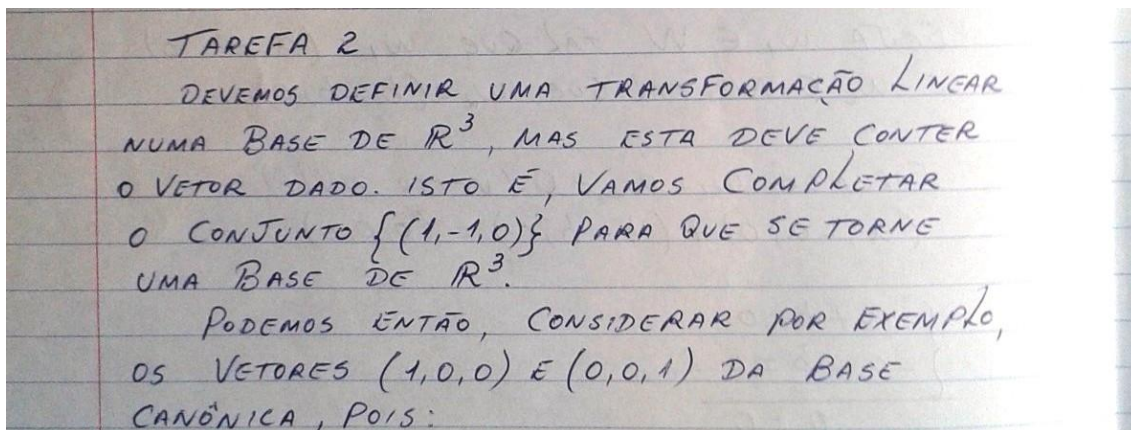 TAREFA 2
DEVEMOS DEFINIR UMA TRANSFORMAÇÃO LINEAR
NUMA BASE DE R³, MAS ESTA DEVE CONTER
O VETOR DADO. ISTO É, VAMOS COMPLETAR
O CONJUNTO {(1,-1,0)} PARA QUE SE TORNE
UMA BASE DE R³.
PODEMOS ENTÃO, CONSIDERAR POR EXEMPLO,
OS VETORES (1,0,0) E (0,0,1) DA BASE
CANÔNICA, POIS: